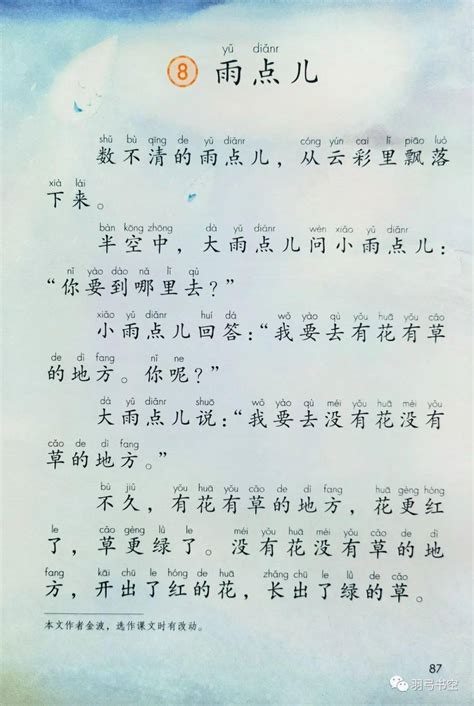 yǔ diǎnr
8 雨点儿
shǔ bù qīng de yǔ diǎnr cóng yún cai lǐ piāo luò
数不清的雨点儿，从云彩里飘落
xià lái
下来。
bàn kōng zhōng dà yǔ diǎnr wèn xiǎo yǔ diǎnr
半空中，大雨点儿问小雨点儿：
nǐ yào dào nǎ lǐ qù
“你要到哪里去？”
xiǎo yǔ diǎnr huí dá wǒ yào qù yǒu huā yǒu cǎo
小雨点儿回答：“我要去有花有草
de dì fang nǐ ne
的地方。你呢？”
dà yǔ diǎnr shuō wǒ yào qù méi yǒu huā méi yǒu
大雨点儿说：“我要去没有花没有
cǎo de dì fang
草的地方。”
bù jiǔ yǒu huā yǒu cǎo de dì fang huā gèng hóng
不久，有花有草的地方，花更红
le cǎo gèng lǜ le méi yǒu huā méi yǒu cǎo de dì
了，草更绿了。没有花没有草的地
fang kāi chū le hóng de huā zhǎng chū le lǜ de cǎo
方，开出了红的花，长出了绿的草。
本文作者金波，选作课文时有改动。
87
羽弓书空